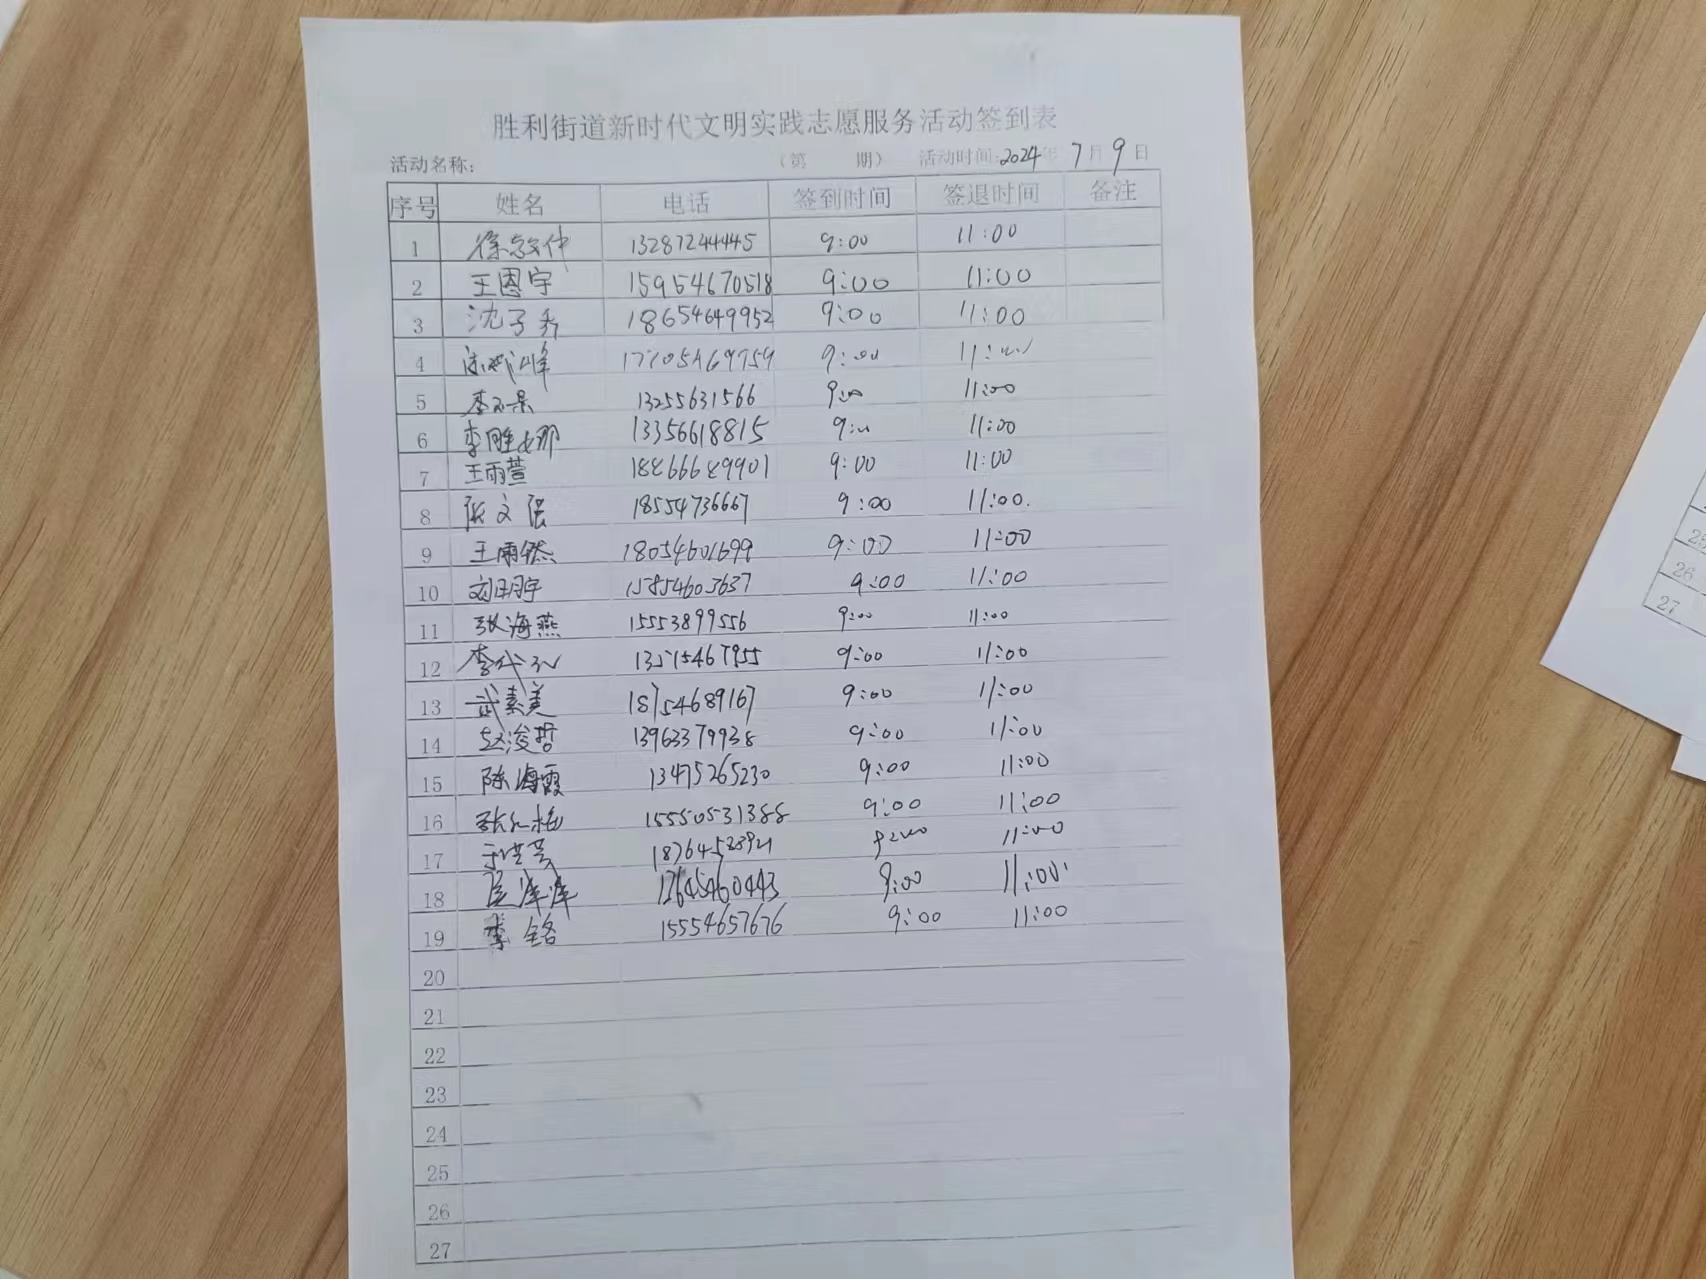 胜利街道新时代文明实践志愿服务活动签到表
活动名称: （第 期） 活动时间:2024年 7月 9日
序号 姓名 电话 签到时间 签退时间 备注
1 13287244445 9:00 11:00
2 王恩宇 15954670518 9:00 11:00
3 沈子秀 18654649952 9:00 11:00
4 9:00 11:00
5 13255631566 9:00 11:00
6 李胜男 13356618815 9:00 11:00
7 王雨萱 9:00 11:00
8 张文强 18554736667 9:00 11:00.
9 王雨然 18054601699 9:00 11:00
10 15854603637 9:00 11:00
11 张海燕 15553899556 9:00 11:00
12 9:00 11:00
13 武素美 18754689167 9:00 11:00
14 赵浚哲 13963379938 9:00 11:00
15 陈海霞 13475265230 9:00 11:00
16 张红梅 15550531388 9:00 11:00
17 9:00 11:00
18 9:00 11:00
19 李铭 15554657676 9:00 11:00
20
21
22
23
24
25
26
27
25
26
27